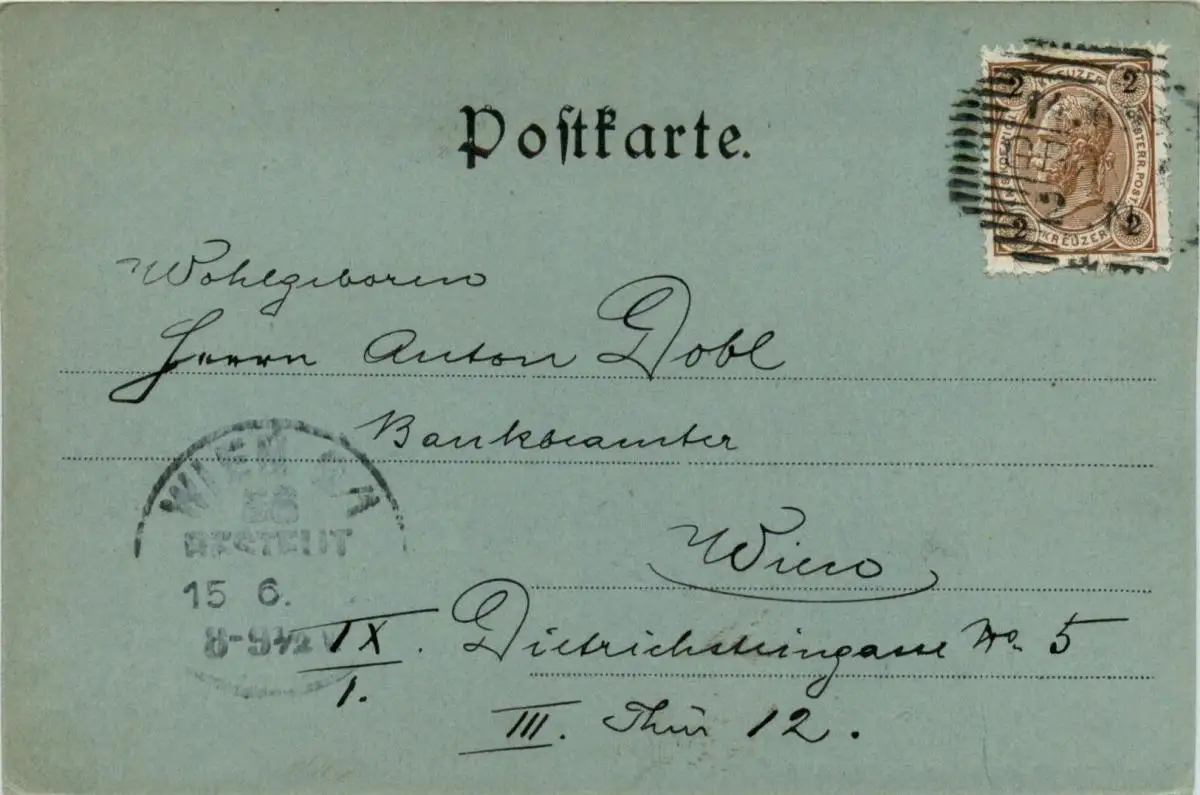 Postkarte.
2 KREUZER 2
OESTERR. POST
2 KREUZER 2
Wohlgeboren
Herrn Anton Dobl
Bankbeamter
Wien
IX. Dietrichsteingasse No. 5
I.
III. Thür 12.
WIEN
BESTELLT
15 6.
8-9½ V